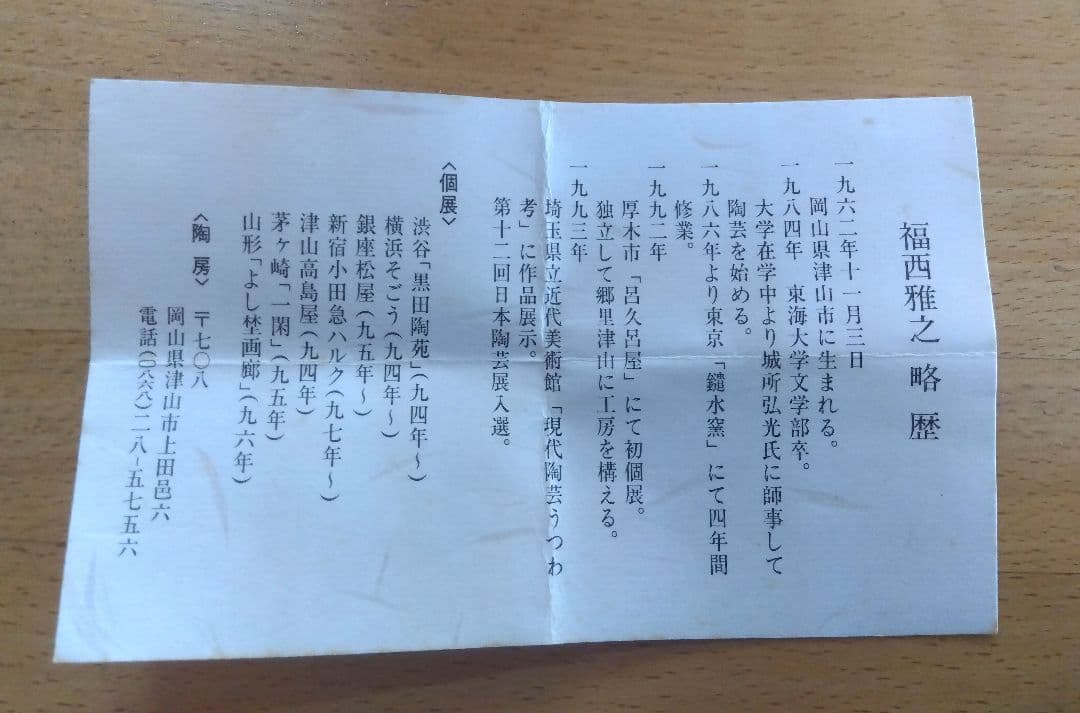 福西雅之 略歴
一九六二年十一月三日
岡山県津山市に生まれる。
一九八四年 東海大学文学部卒。
大学在学中より城所弘光氏に師事して
陶芸を始める。
一九八六年より東京「鑓水窯」にて四年間
修業。
一九九二年
厚木市「呂久呂屋」にて初個展。
独立して郷里津山に工房を構える。
一九九三年
埼玉県立近代美術館「現代陶芸うつわ
考」に作品展示。
第十二回日本陶芸展入選。
〈個展〉
渋谷「黒田陶苑」(九四年〜)
横浜そごう(九四年〜)
銀座松屋(九五年〜)
新宿小田急ハルク(九七年〜)
津山高島屋(九四年)
茅ヶ崎「一閑」(九五年)
山形「よし埜画廊」(九六年)
〈陶房〉 〒七〇八
岡山県津山市上田邑六
電話(〇八六八)二八-五七五六